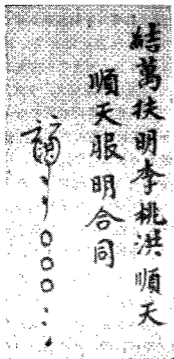 結萬扶明李桃洪順天
順天眼明合同